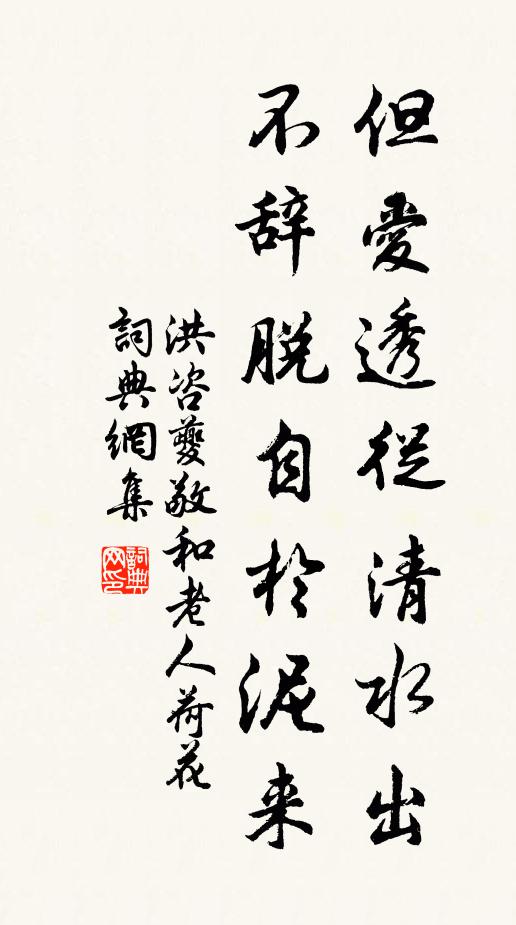 但愛透從清水出
不辞脱自於泥来
洪咨夔敬和老人荷花
詞典網集
詞典网印